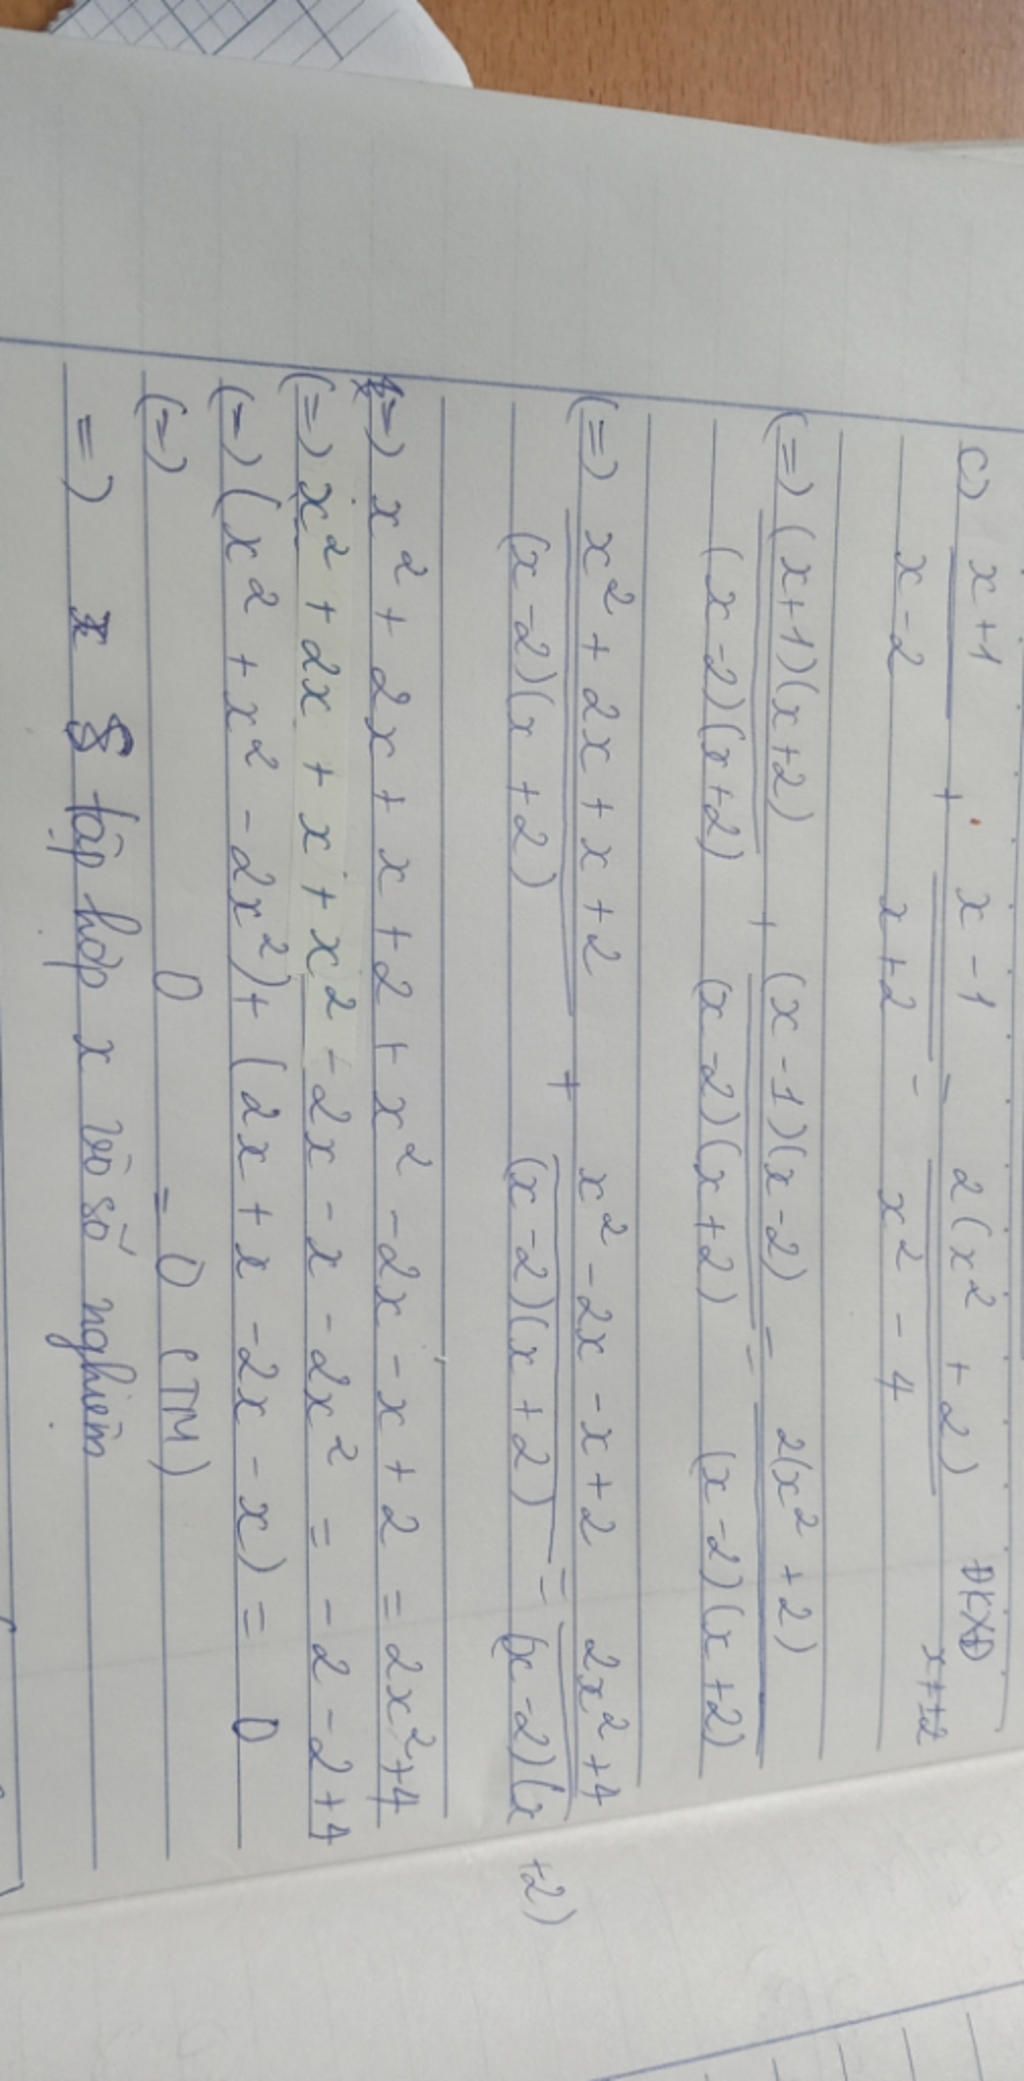 c) x+1 + x-1 = 2(x² + 2) ĐKXĐ
x-2 x+2 x² - 4 x≠±2
(=) (x+1)(x+2) + (x-1)(x-2) = 2(x² + 2)
(x-2)(x+2) (x-2)(x+2) (x-2)(x+2)
(=) x² + 2x + x + 2 + x² - 2x - x + 2 = 2x² + 4
(x-2)(x+2) (x-2)(x+2) (x-2)(x+2)
(=) x² + 2x + x + 2 + x² - 2x - x + 2 = 2x² + 4
(=) x² + 2x + x + x² - 2x - x - 2x² = -2 - 2 + 4
(=) (x² + x² - 2x²) + (2x + x - 2x - x) = 0
(=) 0 = 0 (TM)
=) tập hợp x vô số nghiệm